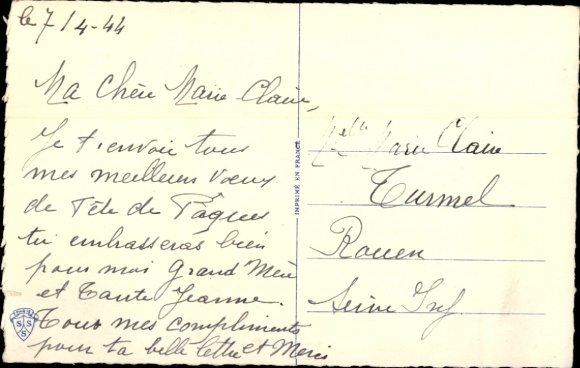 le 7/4-44
Ma Chère Marie-Claire,
Je t'envoie tous
mes meilleurs Vœux
de Fête de Pâques
tu embrasseras bien
pour moi Grand Mère
et Tante Jeanne.
Tous mes compliments
pour ta belle lettre et Merci
IMPRIMÉ EN FRANCE
Melle Marie Claire
Turmel
Rouen
Seine Inf